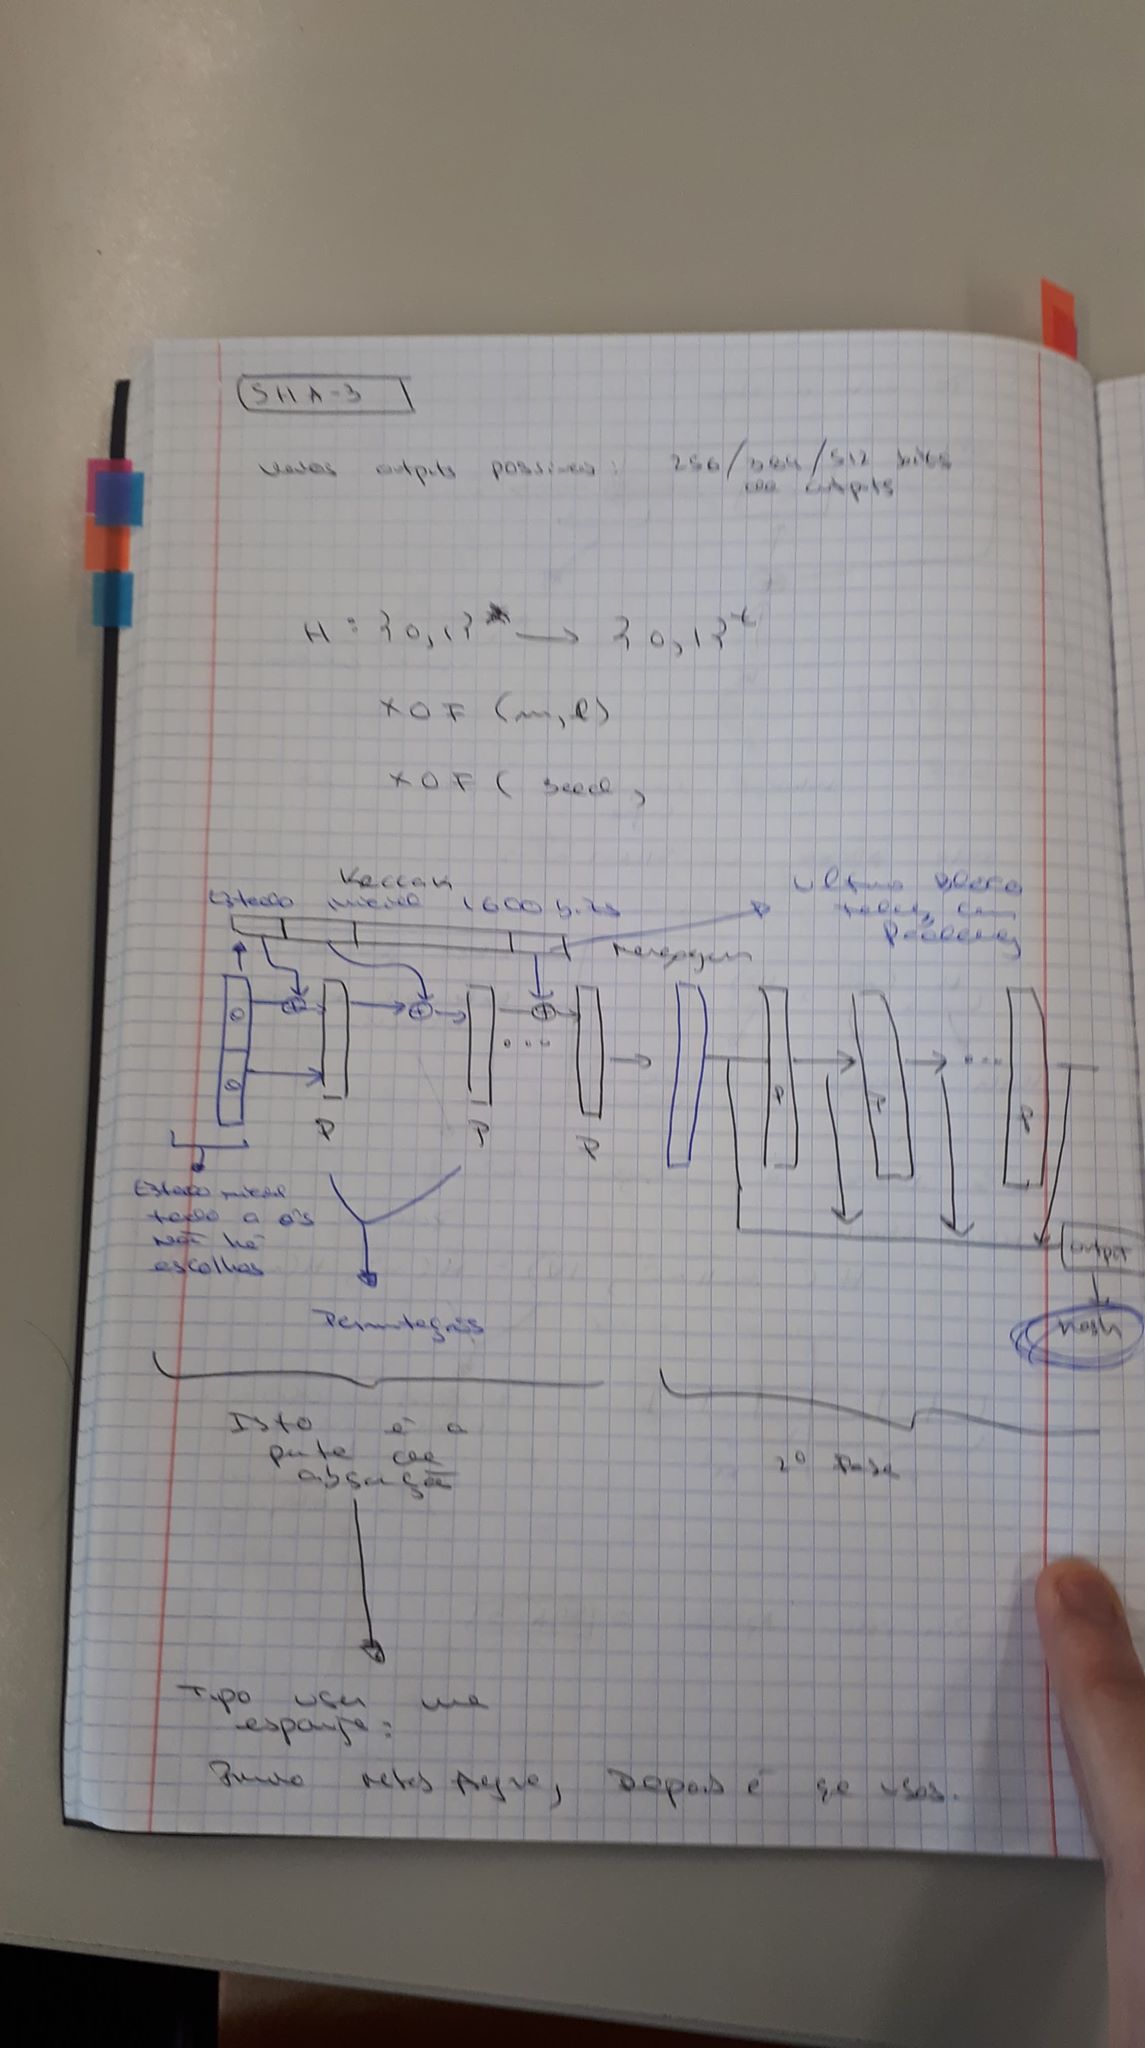 SHA-3
outputs possiveis: 256/384/512 bites
de outputs
H: {0,1}* → {0,1}^t
XOF (m, l)
XOF ( seed,
Keccak
Estado inicial 1600 bits
Ultimo bloco
talvez com
Padding
0
0
P
P
P
P
P
P
Estado inicial
todo a 0's
não há
escolhas
Permutações
output
Hash
Isto é a
parte de
absorção
2º Fase
Tipo usar uma
esponja:
metes Agua, Depois é